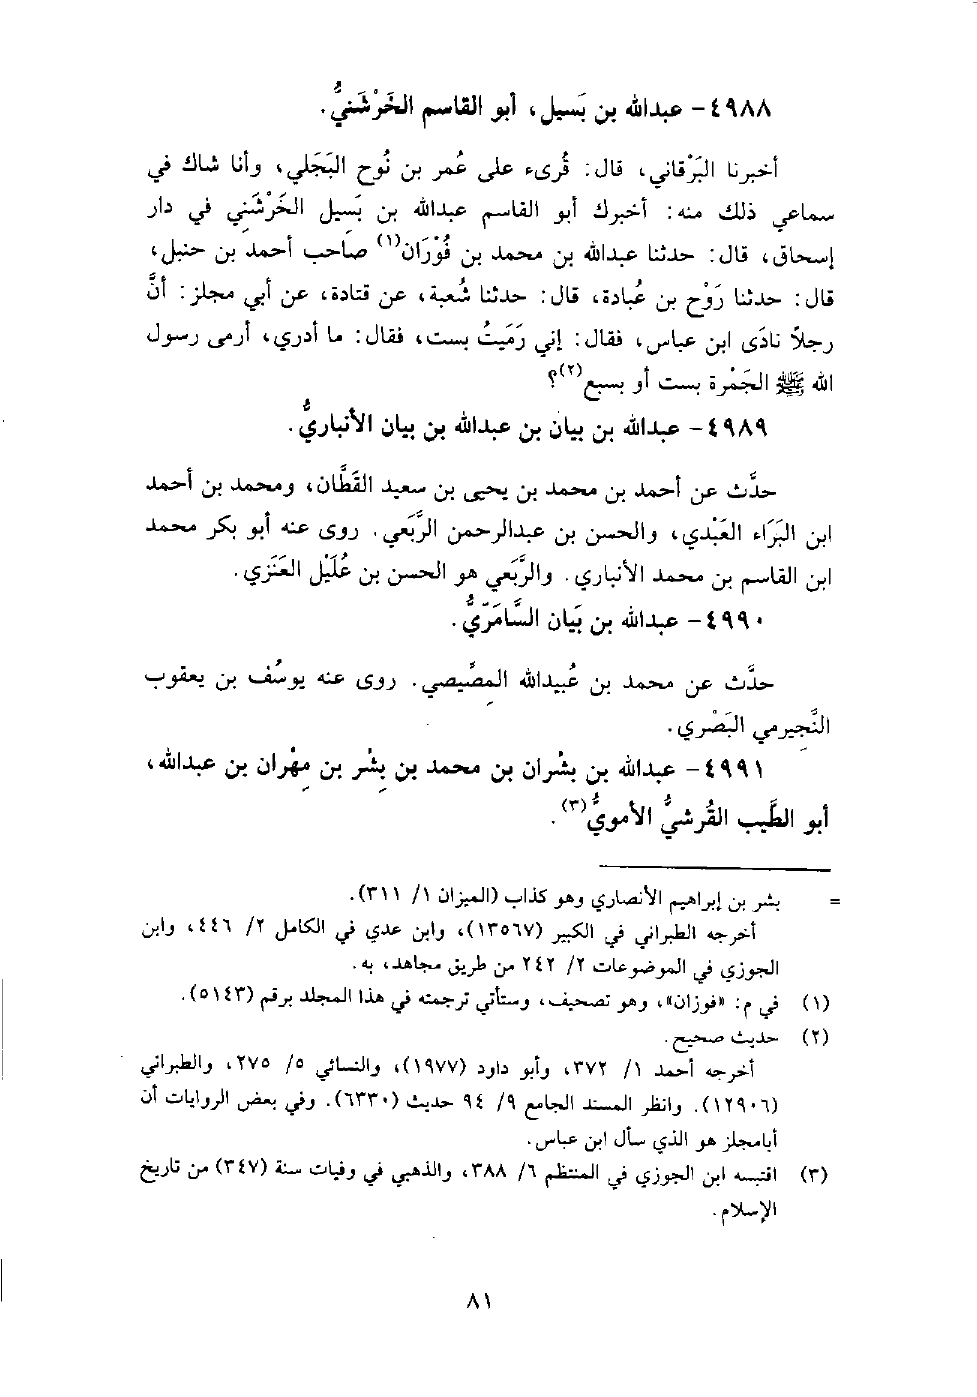 ٤٩٨٨- عبدالله بن بَسيل، أبو القاسم الخَرْشَنيُّ.
أخبرنا البَرْقاني، قال: قُرىء على عُمر بن نُوح البَجَلي، وأنا شاك في
سماعي ذلك منه: أخبرك أبو القاسم عبدالله بن بَسِيل الخَرْشَني في دار
إسحاق، قال: حدثنا عبدالله بن محمد بن فُورَان(١) صاحب أحمد بن حنبل،
قال: حدثنا رَوْح بن عُبادة، قال: حدثنا شُعبة، عن قتادة، عن أبي مجلز: أنَّ
رجلاً نادَى ابن عباس، فقال: إني رَمَيتُ بست، فقال: ما أدري، أرمى رسول
الله ﷺ الجَمْرة بست أو بسبع(٢)؟
٤٩٨٩- عبدالله بن بيان بن عبدالله بن بيان الأنباريُّ.
حدَّث عن أحمد بن محمد بن يحيى بن سعيد القَطَّان، ومحمد بن أحمد
ابن البَرَاء العَبْدي، والحسن بن عبدالرحمن الرَّبَعي. روى عنه أبو بكر محمد
ابن القاسم بن محمد الأنباري. والرَّبَعي هو الحسن بن عُلَيْل العَنَزي.
٤٩٩٠- عبدالله بن بَيان السَّامَرِّيُّ.
حدَّث عن محمد بن عُبيدالله المِصِّيصي. روى عنه يوسُف بن يعقوب
النَّجِيرمي البَصْري.
٤٩٩١- عبدالله بن بِشْران بن محمد بن بِشْر بن مِهْران بن عبدالله،
أبو الطَّيب القُرشيُّ الأمويُّ(٣).
= بشر بن إبراهيم الأنصاري وهو كذاب (الميزان ١/ ٣١١).
أخرجه الطبراني في الكبير (١٣٥٦٧)، وابن عدي في الكامل ٢/ ٤٤٦، وابن
الجوزي في الموضوعات ٢/ ٢٤٢ من طريق مجاهد، به.
(١) في م: «فوزان»، وهو تصحيف، وستأتي ترجمته في هذا المجلد برقم (٥١٤٣).
(٢) حديث صحيح.
أخرجه أحمد ١/ ٣٧٢، وأبو داود (١٩٧٧)، والنسائي ٥/ ٢٧٥، والطبراني
(١٢٩٠٦). وانظر المسند الجامع ٩/ ٩٤ حديث (٦٣٣٠). وفي بعض الروايات أن
أبامجلز هو الذي سأل ابن عباس.
(٣) اقتبسه ابن الجوزي في المنتظم ٦/ ٣٨٨، والذهبي في وفيات سنة (٣٤٧) من تاريخ
الإسلام.
٨١